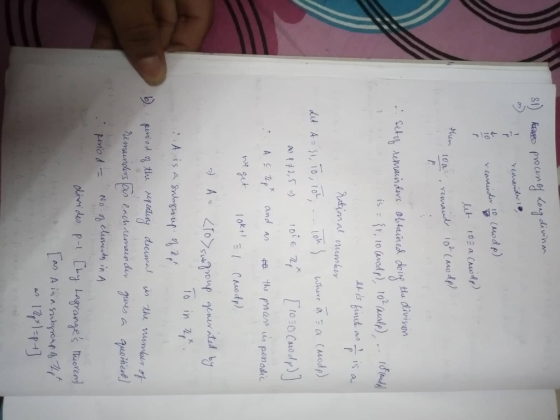 S1) process of long division
a) 1/p remainder 1,
10/p remainder 10 (mod p)
let 10 ≡ a (mod p)
then 10a/p, remainder 10² (mod p)
∴ Set of remainders obtained doing the division
is = {1, 10 (mod p), 10² (mod p), ... 10^k (mod p)}
It is finite as 1/p is a
rational number
let A = {1, 10̄, 10̄², ... 10̄^k} where ā = a (mod p)
as p≠2,5 ⇒ 10̄ ∈ Zp^x [10̄ = 10 (mod p)]
∴ A ⊆ Zp^x and as the process is periodic
we get 10^(k+1) ≡ 1 (mod p)
⇒ A = <10̄> subgroup generated by
10̄ in Zp^x.
∴ A is a subgroup of Zp^x
b) period of the repeating decimal is the number of
remainders [as each remainder gives a quotient]
∴ period = No of elements in A
divides p-1 [by Lagrange's theorem
[as A is a subgroup of Zp^x
as |Zp^x| = p-1]